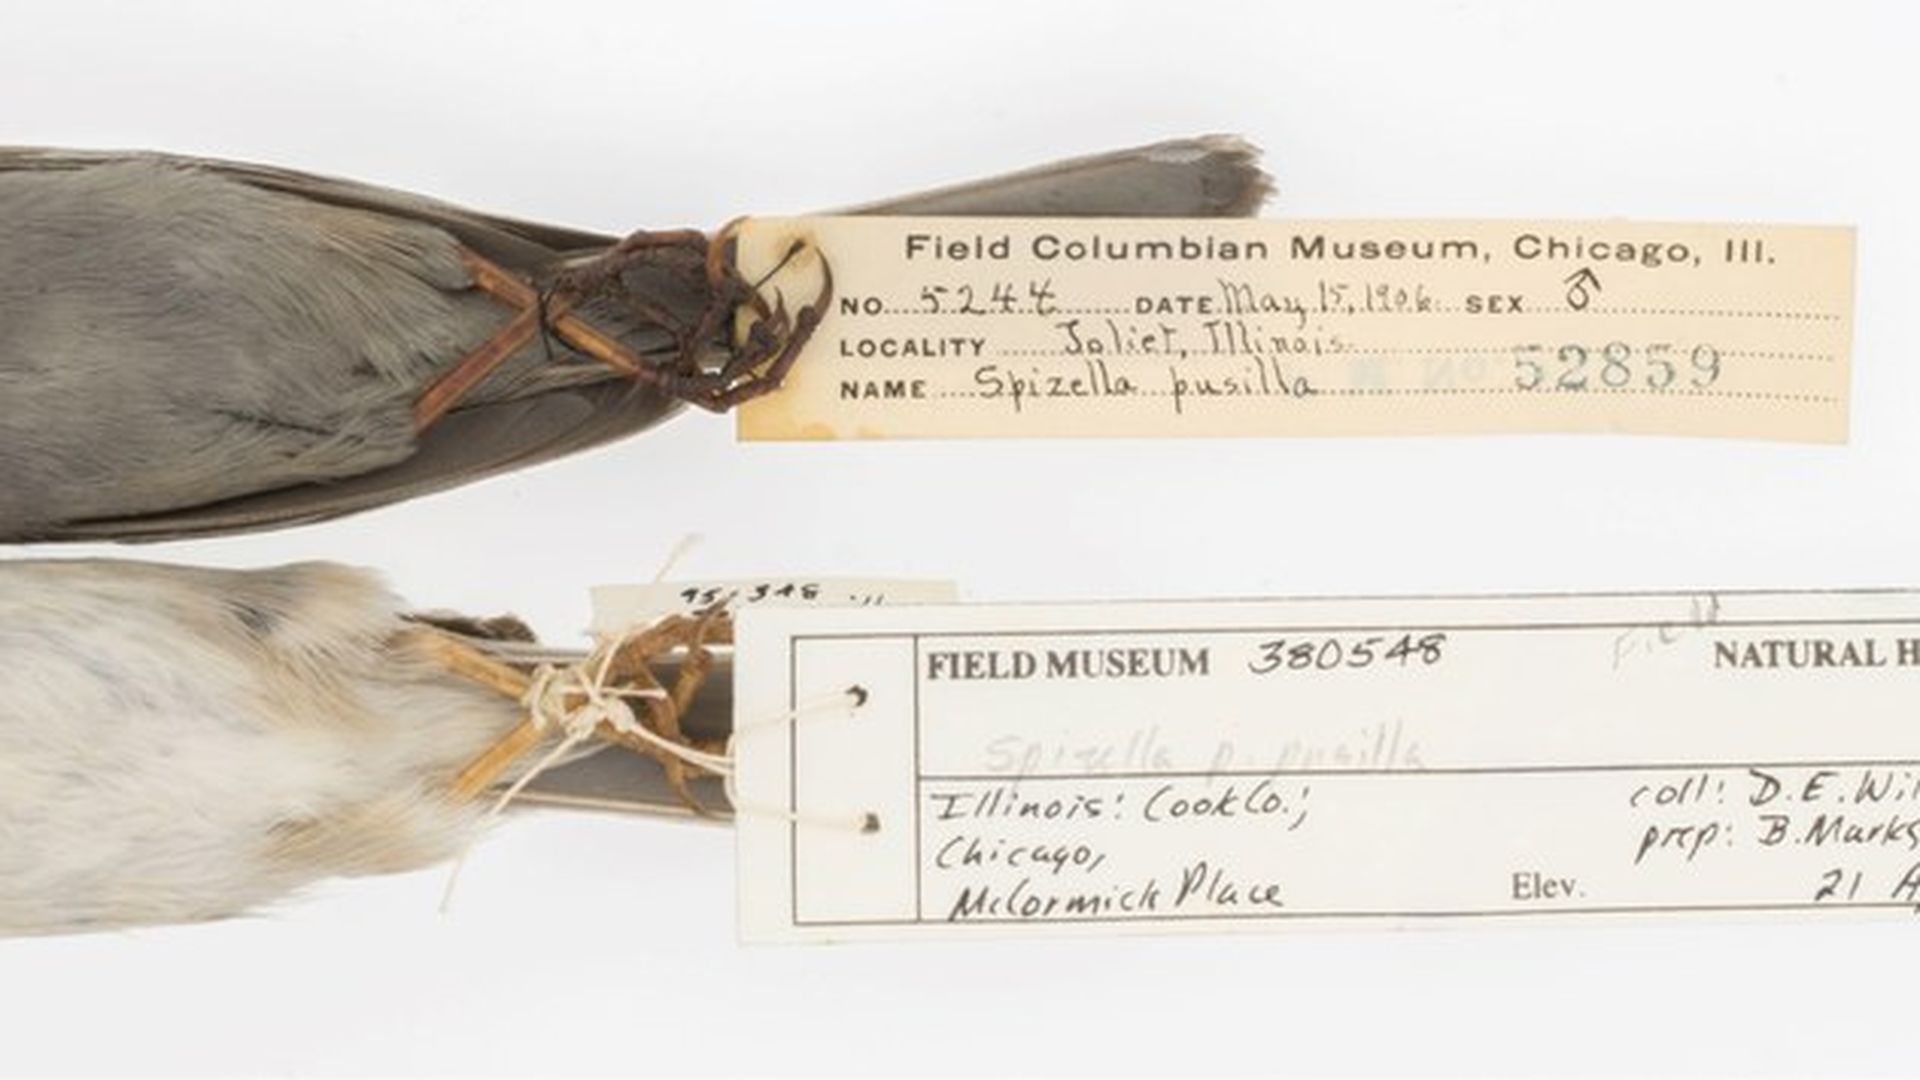 Field Columbian Museum, Chicago, Ill.
NO. 5244 DATE May 15, 1906. SEX ♂
LOCALITY Joliet, Illinois.
NAME Spizella pusilla No 52859
95-348
FIELD MUSEUM 380548 Field NATURAL H
Spizella p. pusilla
Illinois: Cook Co.; coll: D.E. Wil
Chicago, prep: B. Marks
McCormick Place Elev. 21 A